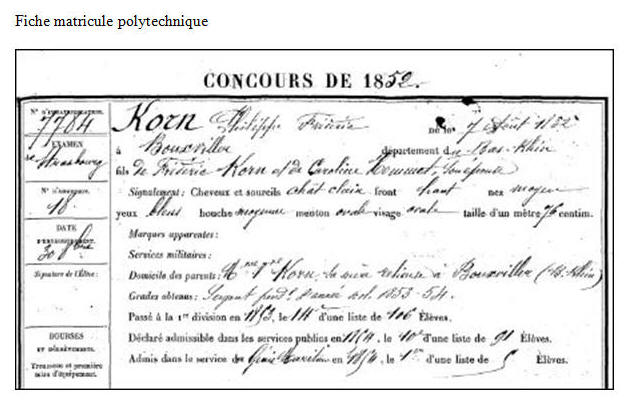 Fiche matricule polytechnique
CONCOURS DE 1852.
N° D'IMMATRICULATION.
7704
EXAMEN
de Strasbourg
N° D'EXAMEN.
18.
DATE
30 8bre
Signature de l'Élève :
BOURSES
ET DÉGRÈVEMENTS.
Trousseau et première
mise d'équipement.
Korn Philippe Frédéric né le 7 Août 1832
à Bouxviller département du Bas-Rhin
fils de Frédéric Korn et de Caroline son épouse
Signalement : Cheveux et sourcils chât clair front haut nez moyen
yeux bleus bouche moyenne menton ovale visage ovale taille d'un mètre 76 centim.
Marques apparentes :
Services militaires :
Domicile des parents : Mme Vve Korn, sa mère à Bouxviller (B. Rhin)
Grades obtenus : Sergent pendt l'année sol. 1853-54.
Passé à la 1re division en 1853, le 14e d'une liste de 106 Élèves.
Déclaré admissible dans les services publics en 1854, le 10e d'une liste de 91 Élèves.
Admis dans le service du Génie Maritime en 1854, le 1er d'une liste de 5 Élèves.